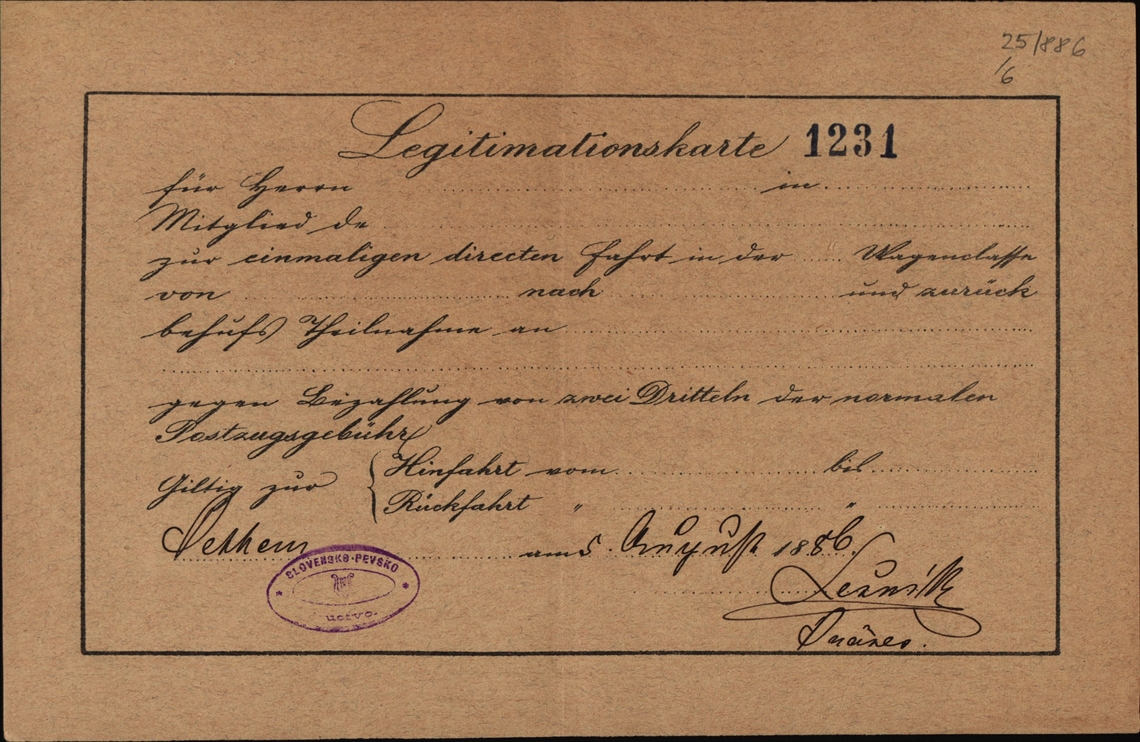 25/886
/6
Legitimationskarte 1231
für Herrn in
Mitglied de
zur einmaligen directen Fahrt in der " Wagenclasse
von nach und zurück
behufs Theilnahme an
gegen Bezahlung von zwei Dritteln der normalen
Postzugsgebühr
Giltig zur Hinfahrt vom bis
Rückfahrt " "
am 5. August 1886.
SLOVENSKO-PEVSKO